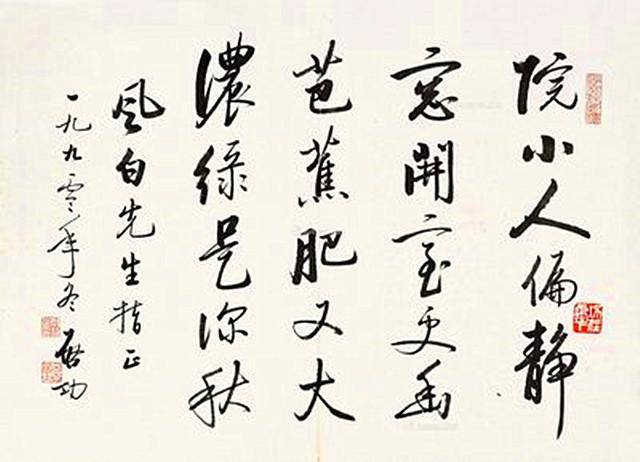 院小人偏静
窓開室更幽
芭蕉肥又大
濃緑是深秋
风白先生指正
一九九零年冬
啟功